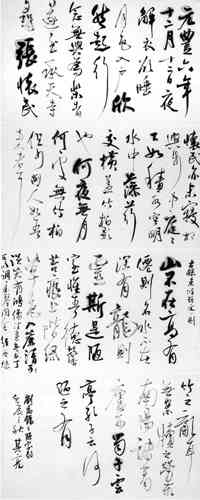 元豐六年
十月十二日夜
解衣欲睡
月色入戶欣
然起行
念無與為樂者
遂至承天寺
尋張懷民
懷民亦未寢相
與步於中庭庭
下如積水空明
水中藻荇
交橫蓋竹柏影
也何夜無月
何處無竹柏
但少閑人如吾
兩人者耳
山不在高有
僊則名水不在
深有龍則
靈斯是陋
室惟吾德馨
苔痕上階綠
草色入簾青
談笑有鴻儒往來無白丁
可以調素琴閱金經無絲
竹之亂耳
無案牘之勞形
南陽諸葛
廬西蜀子雲
亭孔子云何
陋之有
劉禹錫陋室銘